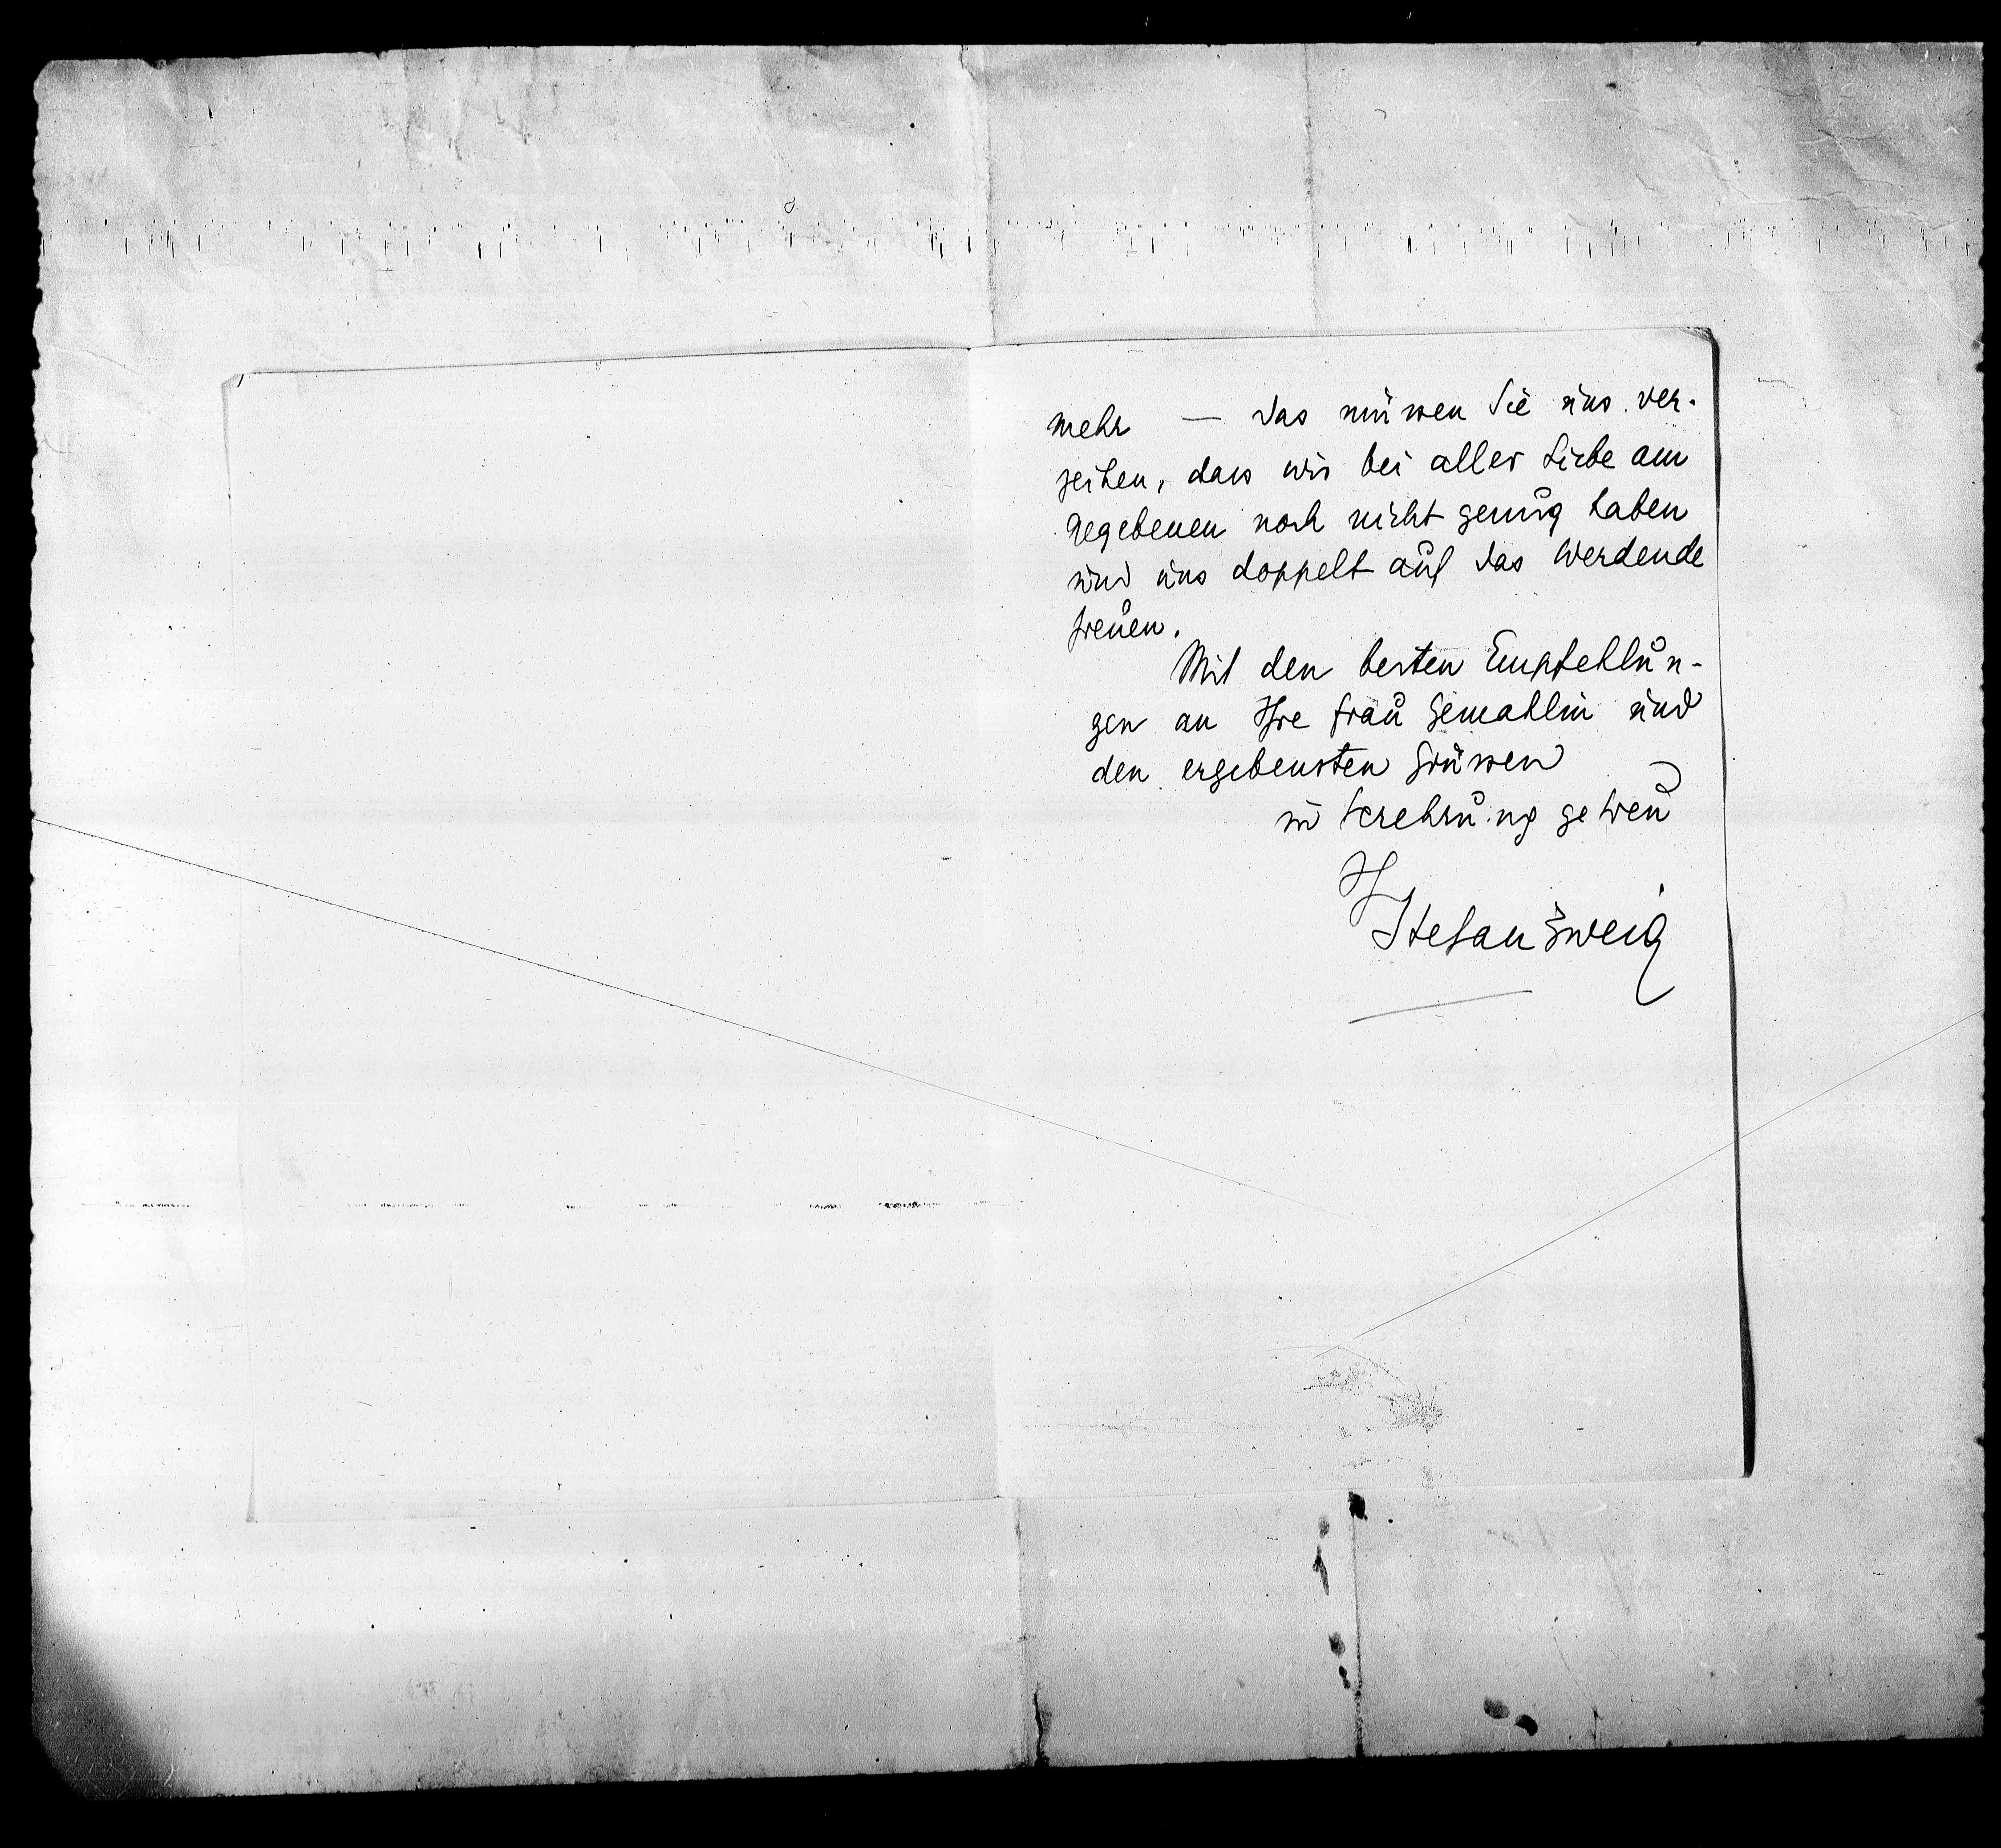 mehr — das müssen Sie uns ver-
zeihen, dass wir bei aller Liebe am
Gegebenen noch nicht genug haben
und uns doppelt auf das Werdende
freuen.
Mit den besten Empfehlun-
gen an Ihre Frau Gemahlin und
den ergebensten Grüssen
in Verehrung getreu
Ihr
Stefan Zweig